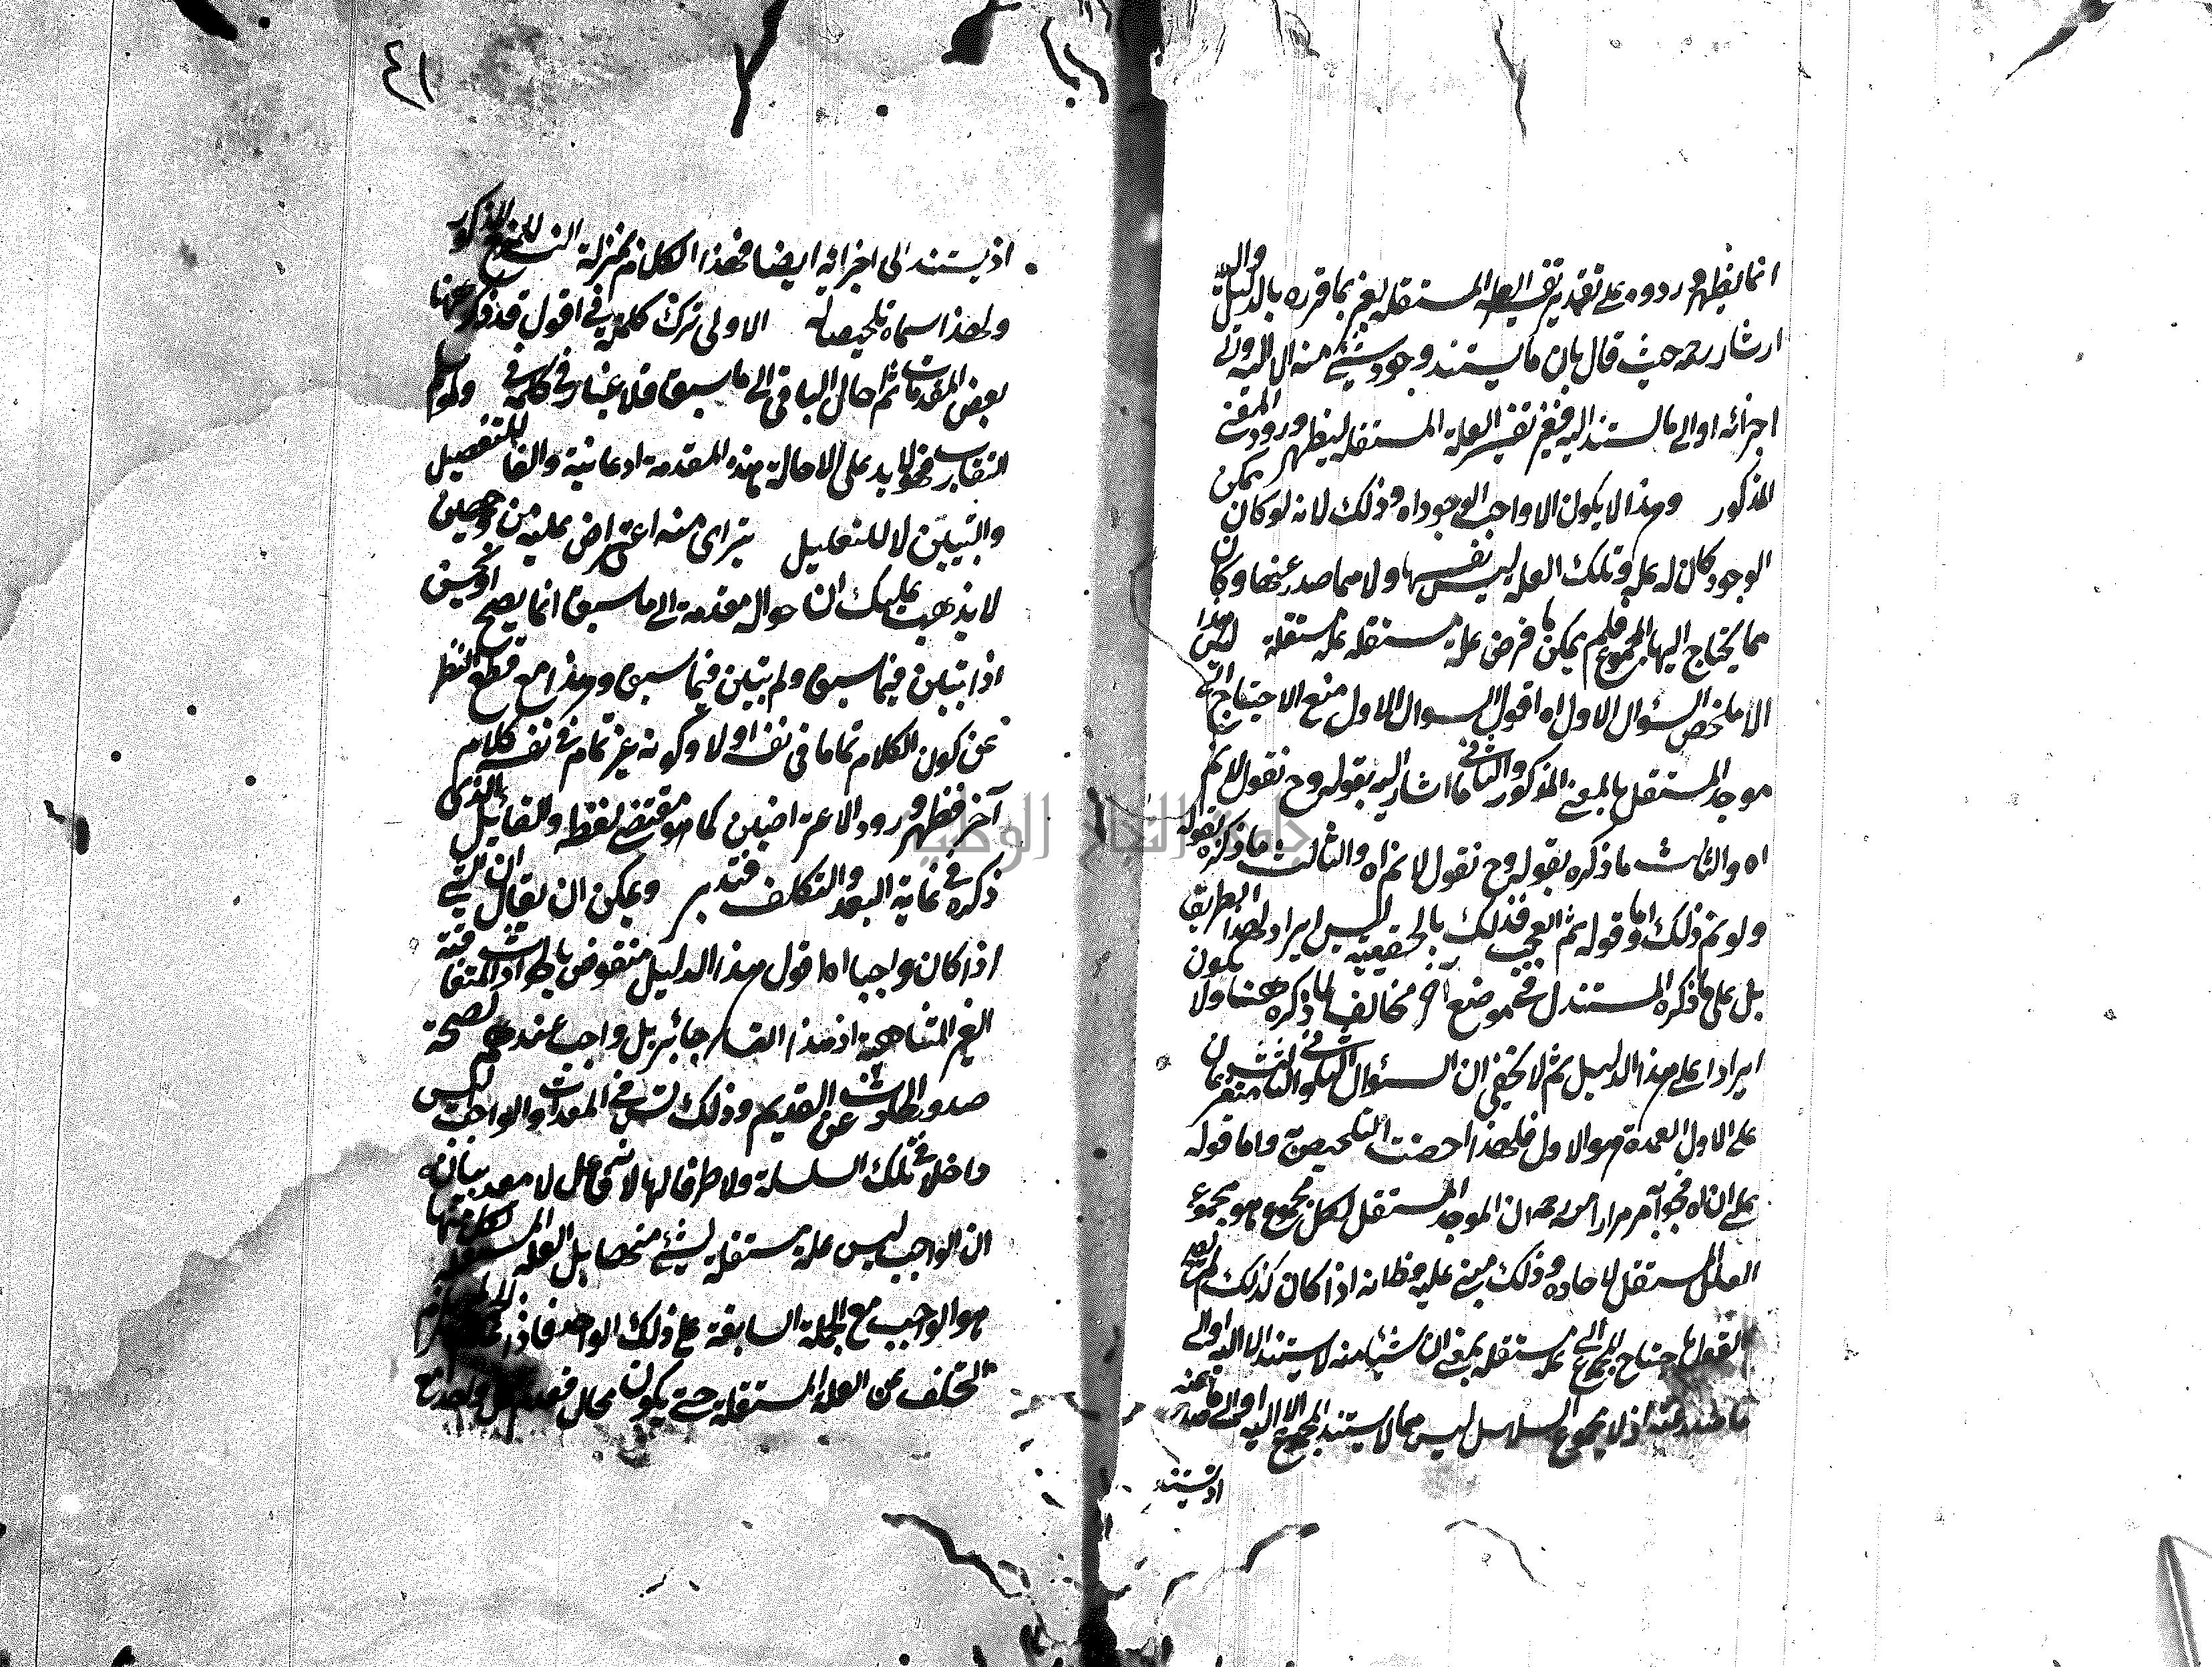 انما يظهر وروده على تقدير تفسير العلة المستقلة بغير ما قرره بالدليل واليه
اشار رحمه حيث قال بان ما يستند وجود شيء منه الا اليه والى
اجزائه او الى ما استند اليه فغير تفسير العلة المستقلة ليظهر ورود المنع
المذكور وهذا لا يكون الا واجب الوجود اه وذلك لانه لو كان ممكن
الوجود كان له علة وتلك العلة ليس نفسها ولا مما صدر عنها وكان
مما يحتاج اليها المجموع فلم يمكن ما فرض علة مستقلة علة مستقلة
الا ملخص السؤال الاول اه اقول السوال الاول منع الاحتياج الى
موجد المستقل بالمعنى المذكور والثاني ما اشار اليه بقوله وح نقول لا نم
اه والثالث ما ذكره بقوله وح نقول لا نم اه والثالث ما ذكره بقوله
ولو تم ذلك واما قوله ثم العجب فذلك بالحقيقة ليس ايراد لهذا الطريق
بل على ما ذكره المستدل في موضع آخر مخالف لما ذكره هنا ولا يكون
ايرادا على هذا الدليل ثم لا يخفى ان السؤال الثاني والثالث متفرعان
على الاول العمدة هو الاول فلهذا التلخيص واما قوله
على ان اه مرارا من ان الموجد المستقل لكل مجموع هو مجموع
العلل المستقل لاحاده وذلك مبني عليه وظ انه اذا كان كذلك
القول باحتياج المجموع الى علة مستقلة بمعنى ان شيئا منه لا يستند الا اليه او الى
ما صدر عنه اذ مجموع السلاسل ليس مما لا يستند المجموع الا اليه او الى ما صدر عنه
اذ يستند
٤١
اذ يستند الى اجزائه ايضا فهذا الكلام بمنزلة المذكور
ولهذا سماه تلخيصا له الاولى ترك كلمة في اقول قد ذكر ههنا
بعض المقدمات ثم احال الباقي الى ما سبق فلا غبار في كلمة في ولو سلم
التقارب فهو لا يدل على الاحالة هذه المقدمة ادعائية والفا للتفصيل
والتبيين لا للتعليل يتراى منه اعتراض عليه من وجهين
لا يذهب عليك ان حوالة مقدمة الى ما سبق انما يصح
اذا تبين فيما سبق ولم يتبين فيما سبق وهذا مع قطع النظر
عن كون الكلام تماما في نفسه او لا وكونه غير تمام في نفسه كلام
آخر فظهر ورود الاعتراضين كما هو مقتضى لفظه والقائل الذي
ذكره في غاية البعد والتكلف فتدبر ويمكن ان يقال ان الشيء
اذا كان واجبا اه اقول هذا الدليل منقوض بالحوادث المتعاقبة
الغير المتناهية اذ هذا القسم جائز بل واجب عندهم لصحة
صدور الحادث عن القديم وذلك التس في المعدات والواجب ليس
داخلا في تلك السلسلة ولا طرفا لها لانه فاعل لا معد بيانه
ان الواجب ليس علة مستقلة لشيء منها بل العلة المستقلة لكل منها
هو الواجب مع الجملة السابقة على ذلك الواحد
التخلف عن العلة المستقلة حتى يكون محال